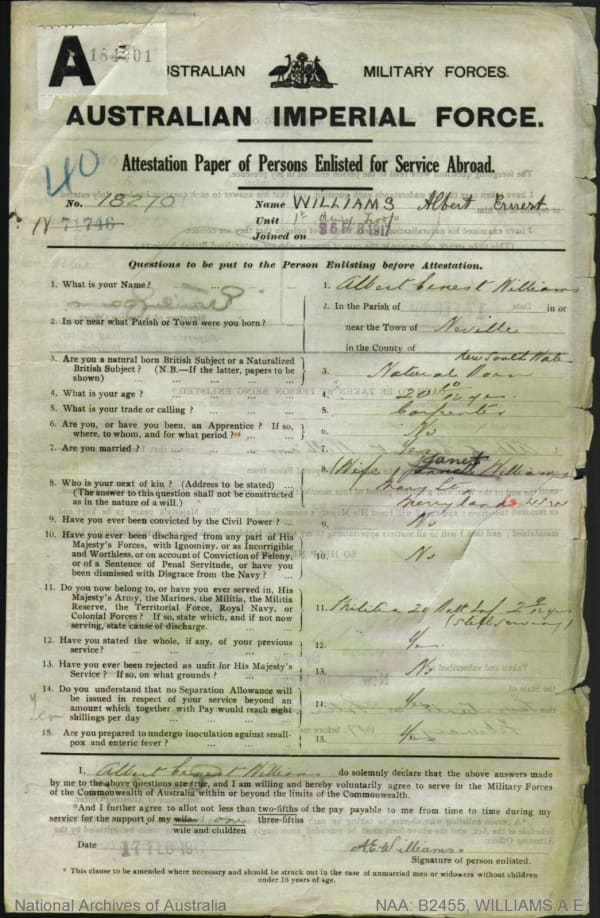 A
184201
AUSTRALIAN MILITARY FORCES.
AUSTRALIAN IMPERIAL FORCE.
Attestation Paper of Persons Enlisted for Service Abroad.
40
No. 18270 Name WILLIAMS Albert Ernest
N 71746 Unit
Joined on
Questions to be put to the Person Enlisting before Attestation.
1. What is your Name? ... ... ... 1. Albert Ernest Williams
2. In or near what Parish or Town were you born? ... 2. In the Parish of in or
near the Town of Neville
in the County of New South Wales
3. Are you a natural born British Subject or a Naturalized
British Subject? (N.B.—If the latter, papers to be
shown) ... ... ... 3. Natural Born
4. What is your age? ... ... ... 4.
5. What is your trade or calling? ... ... 5. Carpenter
6. Are you, or have you been, an Apprentice? If so,
where, to whom, and for what period? ... ... 6. No
7. Are you married? ... ... ... 7. Yes
8. Who is your next of kin? (Address to be stated) ...
(The answer to this question shall not be constructed
as in the nature of a will.) ... ... 8. (Wife) Janet Williams
Merrylands NSW
9. Have you ever been convicted by the Civil Power? ... 9. No
10. Have you ever been discharged from any part of His
Majesty's Forces, with Ignominy, or as Incorrigible
and Worthless, or on account of Conviction of Felony,
or of a Sentence of Penal Servitude, or have you
been dismissed with Disgrace from the Navy? ... 10. No
11. Do you now belong to, or have you ever served in, His
Majesty's Army, the Marines, the Militia, the Militia
Reserve, the Territorial Force, Royal Navy, or
Colonial Forces? If so, state which, and if not now
serving, state cause of discharge. ... 11. Militia 20 Batt Inf
(Still Serving)
12. Have you stated the whole, if any, of your previous
service? ... ... ... 12. Yes
13. Have you ever been rejected as unfit for His Majesty's
Service? If so, on what grounds? ... ... 13. No
14. Do you understand that no Separation Allowance will
be issued in respect of your service beyond an
amount which together with Pay would reach eight
shillings per day ... ... ... 14. Yes
15. Are you prepared to undergo inoculation against small-
pox and enteric fever? ... ... 15. Yes
I, Albert Ernest Williams do solemnly declare that the above answers made
by me to the above questions are true, and I am willing and hereby voluntarily agree to serve in the Military Forces
of the Commonwealth of Australia within or beyond the limits of the Commonwealth.
*And I further agree to allot not less than two-fifths of the pay payable to me from time to time during
service for the support of my wife one three-fifths
wife and children
Date 17 FEB 1917 A E Williams
Signature of person enlisted.
* This clause to be amended where necessary and should be struck out in the case of unmarried men or widowers without children
under 18 years of age.
National Archives of Australia NAA: B2455, WILLIAMS A E